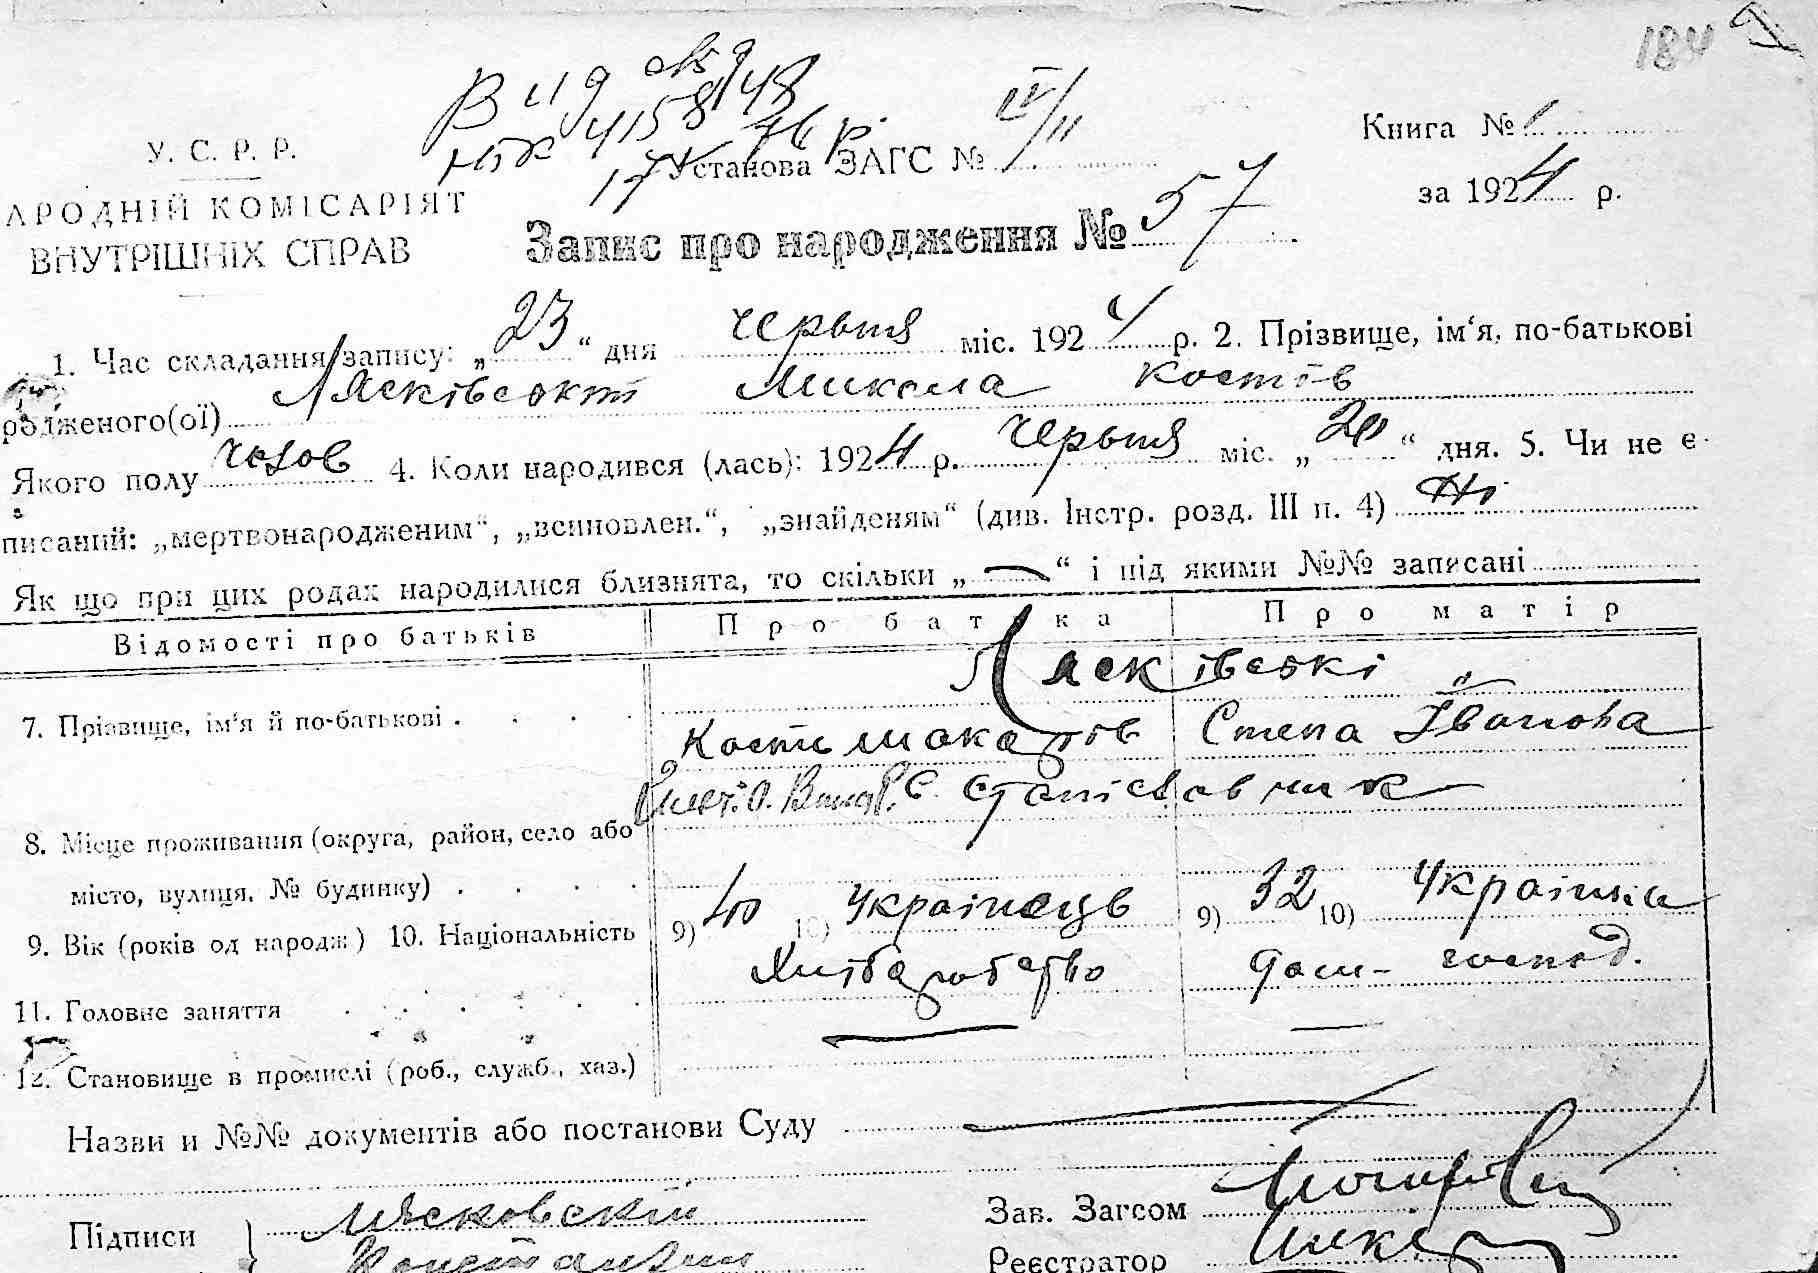 184
Вид
4158148
17 76 р.
У. С. Р. Р.
Установа ЗАГС № IV/11
Книга № 1
АРОДНІЙ КОМІСАРІЯТ
ВНУТРІШНІХ СПРАВ
за 1924 р.
Запис про народження № 57
1. Час складання запису: „23“ дня червня міс. 1924 р. 2. Прізвище, ім‘я, по-батькові
родженого(ої) Лясківський Микола Костів
Якого полу чолов 4. Коли народився (лась): 1924 р. червня міс. „20“ дня. 5. Чи не є
писаний: „мертвонародженим“, „всиновлен.“, „знайденям“ (див. Інстр. розд. III п. 4) Ні
Як що при цих родах народилися близнята, то скільки „—“ і під якими №№ записані
Відомості про батьків Про батька Про матір
Лясківські
7. Прізвище, ім‘я й по-батькові . . . . Кость Макарів Степа Іванова
с. Станіславчик
8. Місце проживання (округа, район, село або
місто, вулиця, № будинку) . . . .
9. Вік (років од народж) 10. Національність 9) 40 10) Українець 9) 32 10) Українка
11. Головне заняття . . . . Хліборобство дом- господ.
12. Становище в промислі (роб., служб., хаз.) — —
Назви и №№ документів або постанови Суду —
Підписи } Лясковский Зав. Загсом
Константин Реєстратор